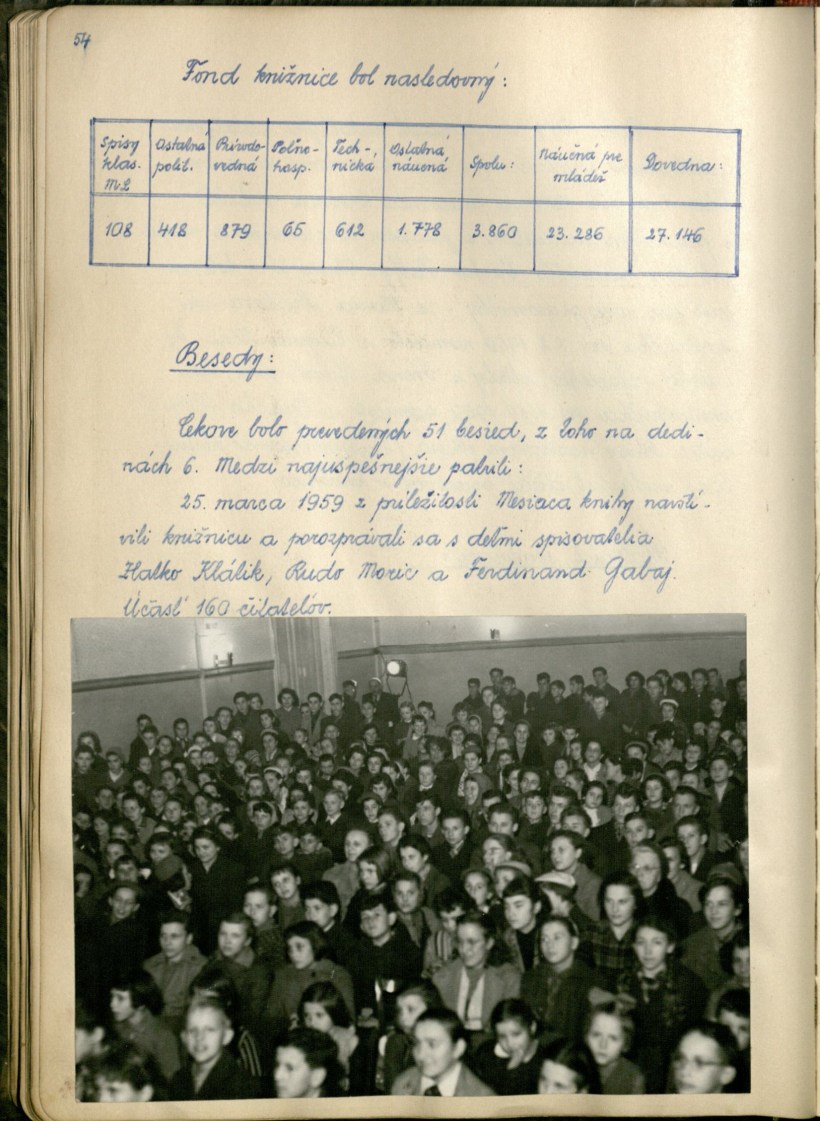 54
Fond knižnice bol nasledovný:
Spisy klas. ML | Ostatná polit. | Prírodo-vedná | Poľno-hosp. | Tech-nická | Ostatná náučná | Spolu: | Náučná pre mládež | Dovedna:
108 | 418 | 879 | 65 | 612 | 1.778 | 3.860 | 23.286 | 27.146
Besedy:
Cekove bolo prevedených 51 besied, z toho na dedi-
nách 6. Medzi najúspešnejšie patrili:
25. marca 1959 z príležitosti Mesiaca knihy navští-
vili knižnicu a porozprávali sa s deťmi spisovatelia
Zlatko Klátik, Rudo Moric a Ferdinand Gabaj.
Účasť 160 čitateľov.